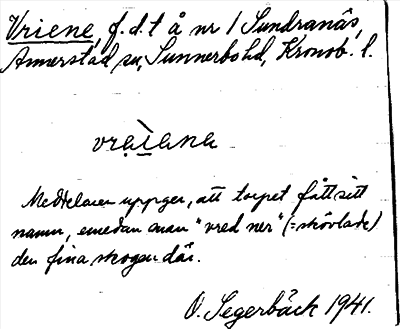 Vriene, f.d.t å nr 1 Sundranäs,
Annerstad sn, Sunnerbo hd, Kronob. l.
vrạìana
Meddelaren uppger, att torpet fått sitt
namn, emedan man "vred ner" (= skövlade)
den fina skogen där.
O. Segerbäck 1941.